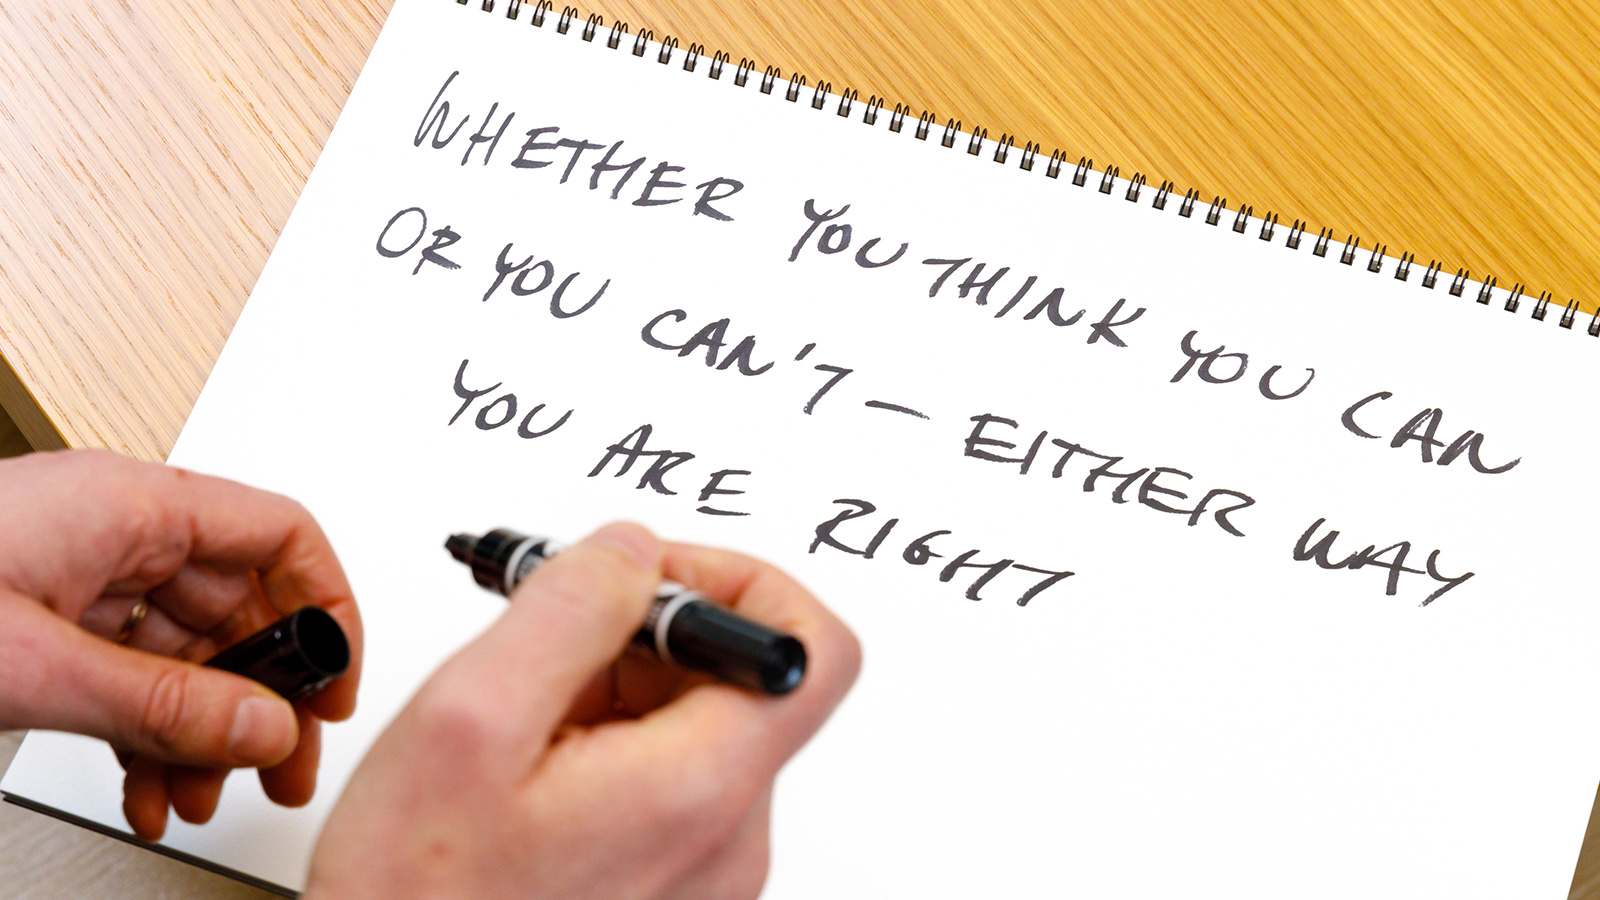 WHETHER YOU THINK YOU CAN
OR YOU CAN'T — EITHER WAY
YOU ARE RIGHT